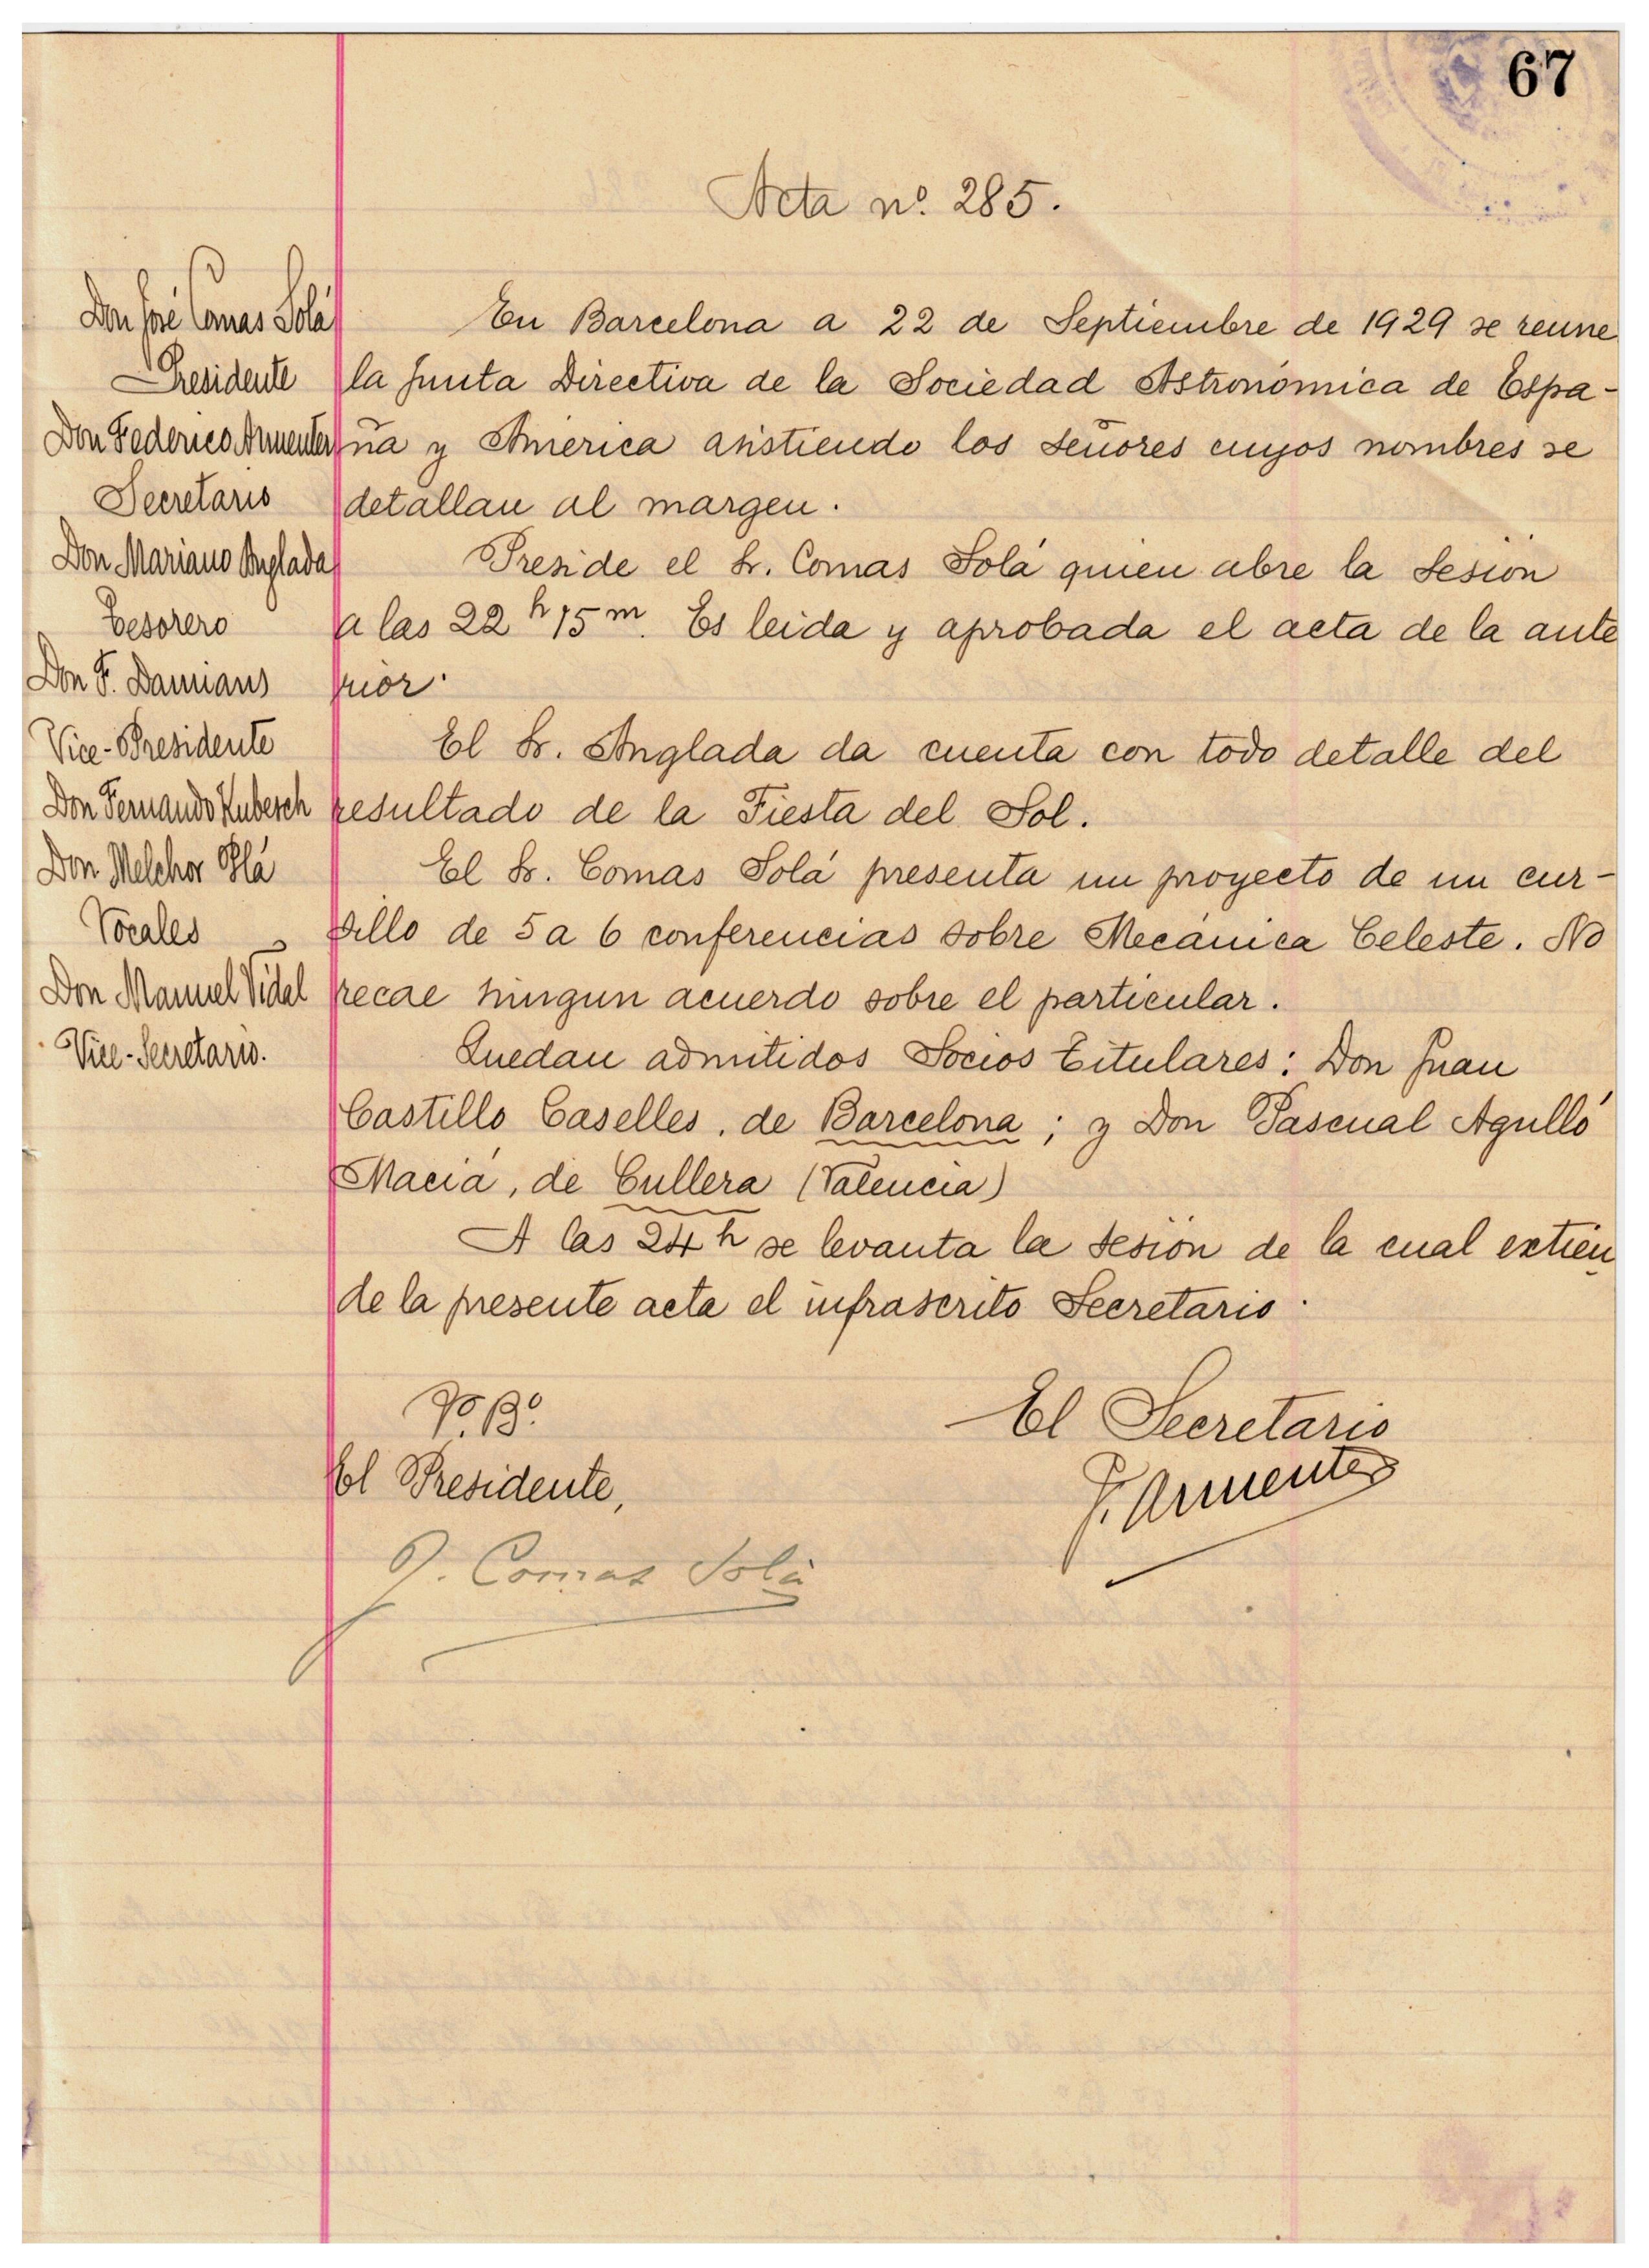 67
Acta nº. 285.
Don José Comas Solá
Presidente
Don Federico Armenter
Secretario
Don Mariano Anglada
Tesorero
Don F. Damians
Vice-Presidente
Don Fernando Kubesch
Don Melchor Plá
Vocales
Don Manuel Vidal
Vice-Secretario.
En Barcelona a 22 de Septiembre de 1929 se reune
la Junta Directiva de la Sociedad Astronómica de Espa-
ña y America asistiendo los señores cuyos nombres se
detallan al margen.
Preside el Sr. Comas Solá quien abre la sesión
a las 22 h 15 m. Es leida y aprobada el acta de la ante
rior.
El Sr. Anglada da cuenta con todo detalle del
resultado de la Fiesta del Sol.
El Sr. Comas Solá presenta un proyecto de un cur-
sillo de 5 a 6 conferencias sobre Mecánica Celeste. No
recae ningun acuerdo sobre el particular.
Quedan admitidos Socios Titulares: Don Juan
Castillo Caselles, de Barcelona; y Don Pascual Agulló
Maciá, de Cullera (Valencia)
A las 24 h se levanta la sesión de la cual extien
de la presente acta el infrascrito Secretario.
Vº. Bº.
El Presidente,
J. Comas Solà
El Secretario
F. Armenter